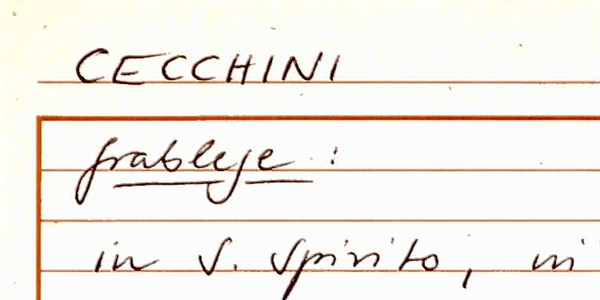 CECCHINI
Grablege :
in S. Spirito, in